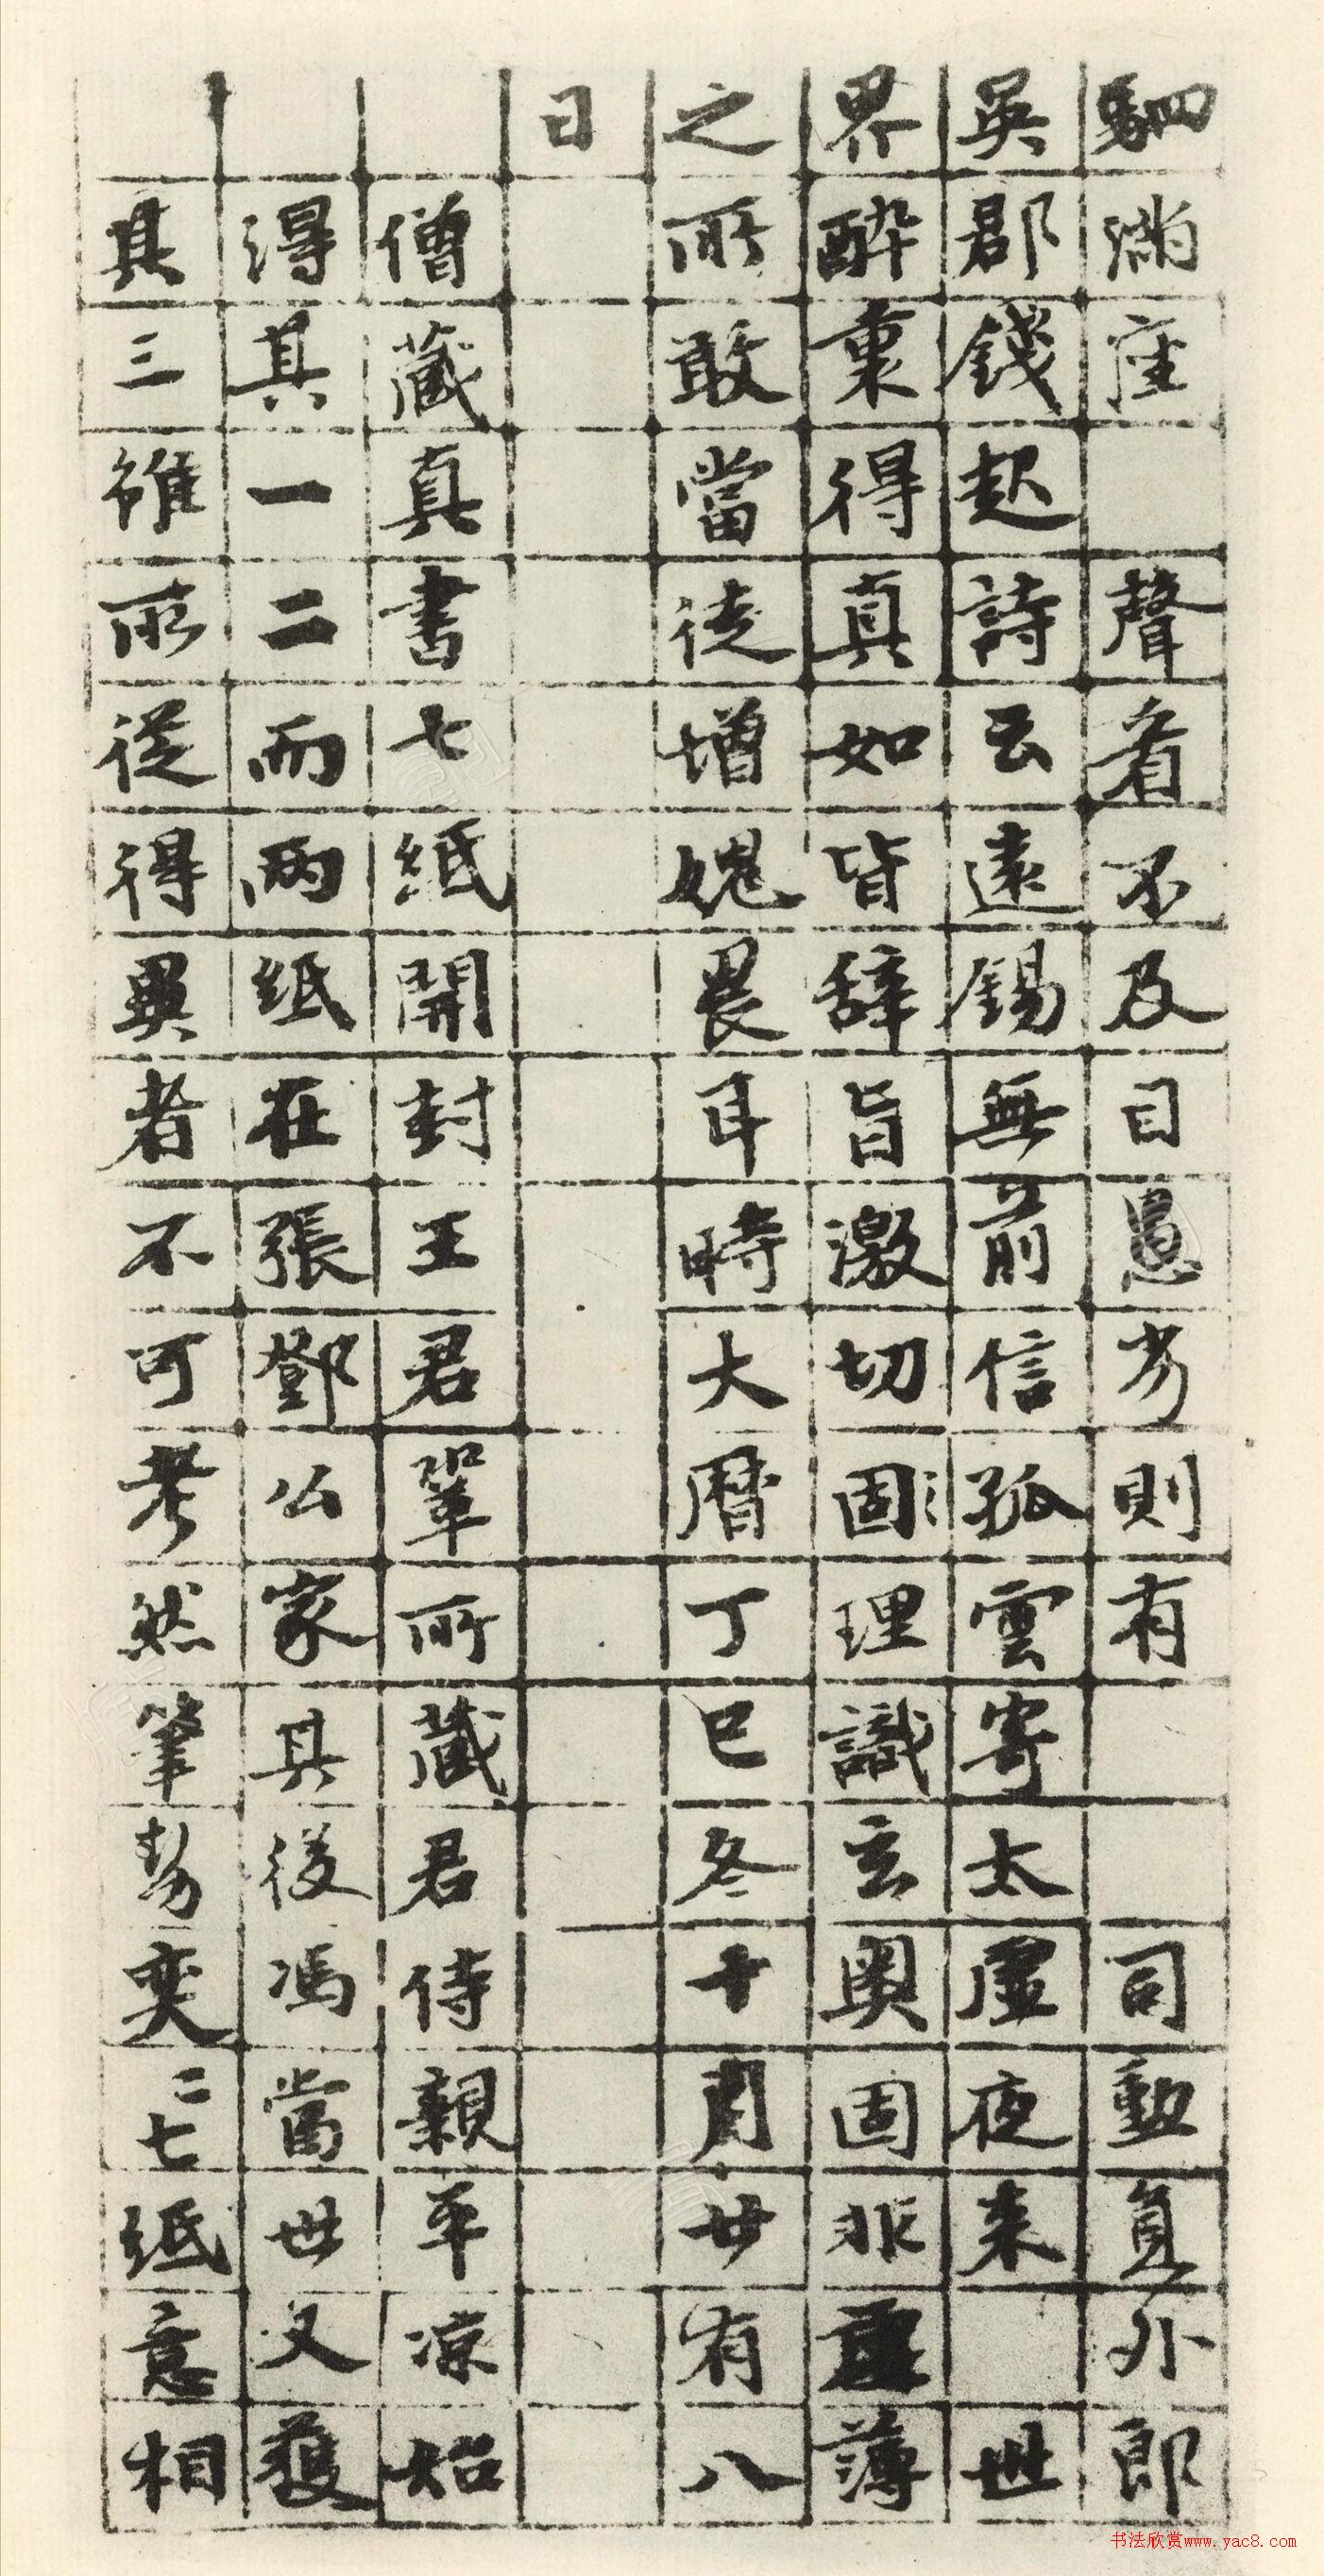 駟滿座 聲看不及目愚劣則有 司勳員外郎
吳郡錢起詩云遠錫無前信孤雲寄太虛夜来 世
界醉裏得真如皆辞旨激切固理識玄奧固非虛薄
之所敢當徒增媿畏耳時大曆丁巳冬十月廿有八
日
僧藏真書七紙開封王君鞏所藏君侍親平凉始
得其一二而兩紙在張鄧公家其後馮當世又獲
其三雖所從得異者不可考然筆勢奕二七紙意相
书法欣赏www.yac8.com